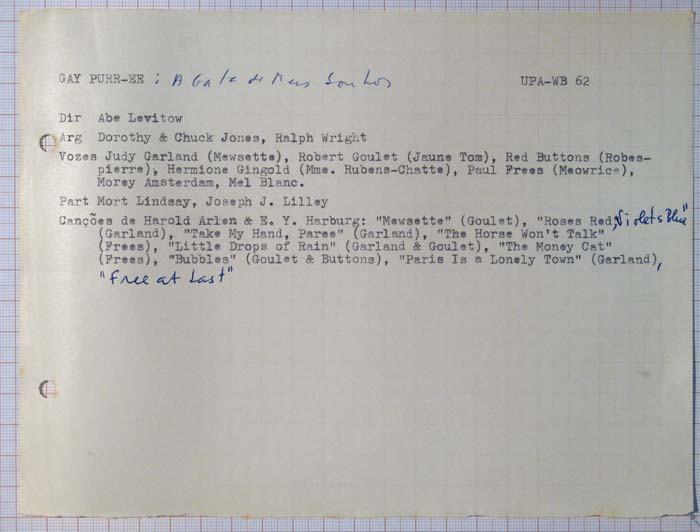 GAY PURR-EE : A Gata de Meus Sonhos UPA-WB 62
Dir Abe Levitow
Arg Dorothy & Chuck Jones, Ralph Wright
Vozes Judy Garland (Mewsette), Robert Goulet (Jaune Tom), Red Buttons (Robes-
pierre), Hermione Gingold (Mme. Rubens-Chatte), Paul Frees (Meowrice),
Morey Amsterdam, Mel Blanc.
Part Mort Lindsay, Joseph J. Lilley
Canções de Harold Arlen & E. Y. Harburg: "Mewsette" (Goulet), "Roses Red, Violets Blue"
(Garland), "Take My Hand, Paree" (Garland), "The Horse Won't Talk"
(Frees), "Little Drops of Rain" (Garland & Goulet), "The Money Cat"
(Frees), "Bubbles" (Goulet & Buttons), "Paris Is a Lonely Town" (Garland),
"Free at Last"